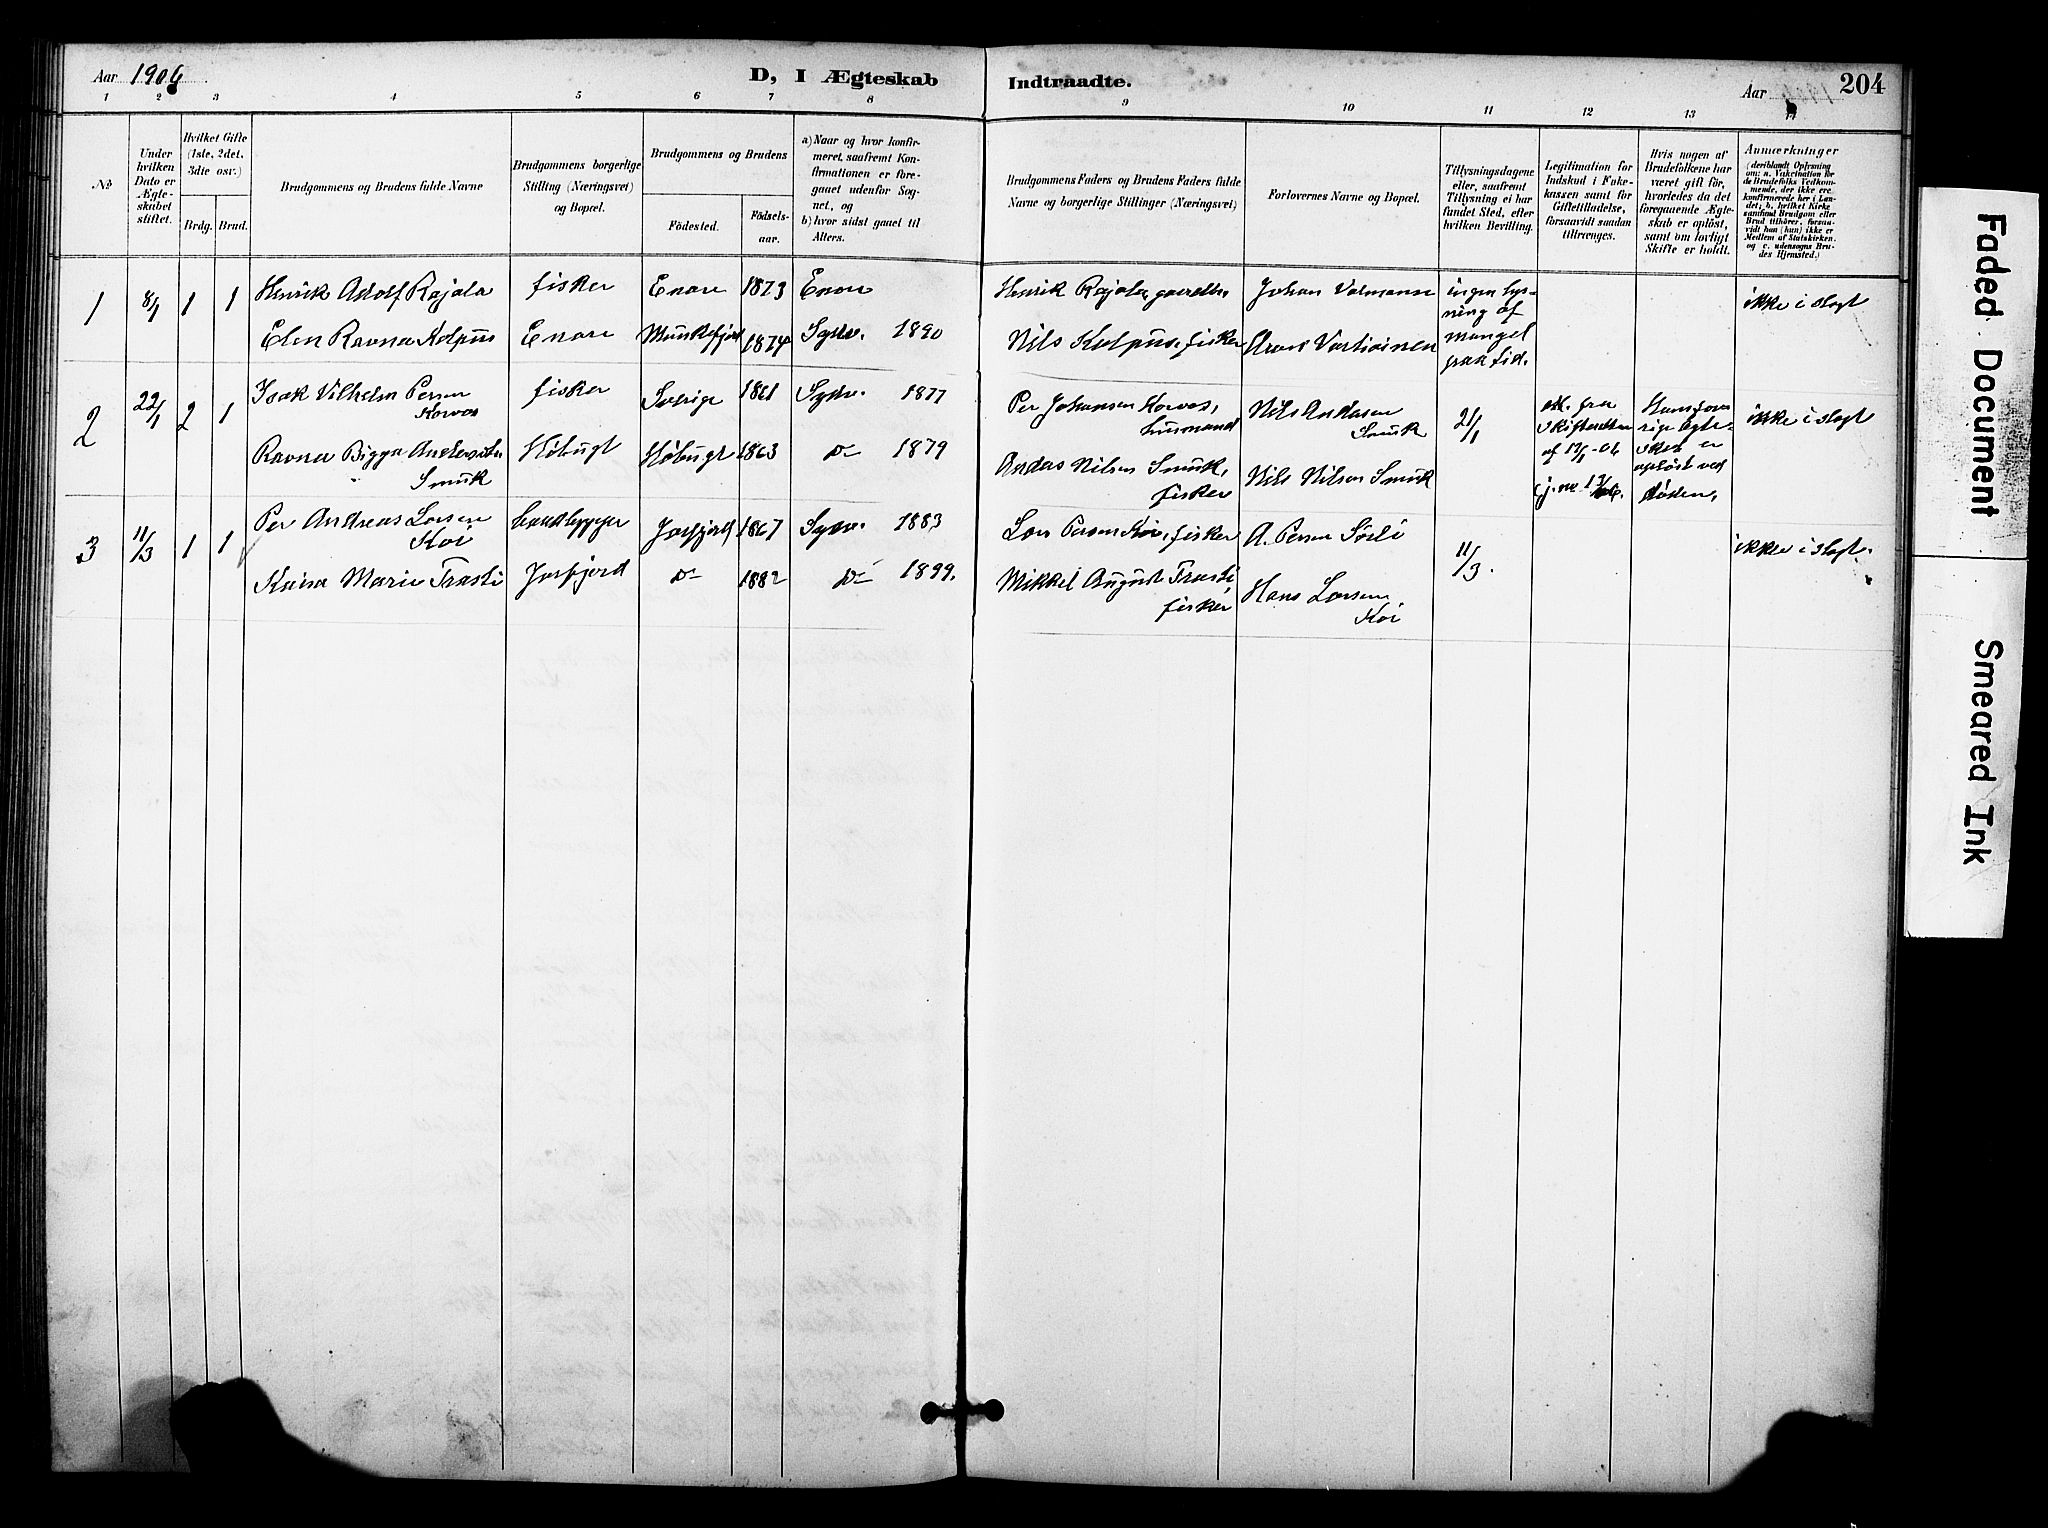 Aar 1906
D, I Ægteskab
Indtraadte.
Aar
204
1 2 3 4 5 6 7 8 9 10 11 12 13 14
No
Under hvilken Dato er Ægteskabet stiftet.
Hvilket Gifte (1ste, 2det, 3die osv.)
Brdg. Brud.
Brudgommens og Brudens fulde Navne
Brudgommens borgerlige Stilling (Næringsvei) og Bopæl.
Brudgommens og Brudens
Födested.
Födselsaar.
a) Naar og hvor konfirmeret, saafremt Konfirmationen er foregaaet udenfor Sognet, og
b) hvor sidst gaaet til Alters.
Brudgommens Faders og Brudens Faders fulde Navne og borgerlige Stillinger (Næringsvei)
Forlovernes Navne og Bopæl.
Tillysningsdagene eller, saafremt Tillysning ei har fundet Sted, efter hvilken Bevilling.
Legitimation for Indskud i Enkekassen samt for Giftetilladelse, forsaavidt saadan tiltrænges.
Hvis nogen af Brudefolkene har været gift för, hvorledes da det foregaaende Ægteskab er oplöst, samt om lovligt Skifte er holdt.
Anmærkninger
(deriblandt Oplysning om: a. Vakcination for de Brudefolks Vedkommende, der ikke ere konfirmerede her i Landet; b. hvilket Kirkesamfund Brudgom eller Brud tilhörer, forsaavidt han (hun) ikke er Medlem af Statskirken, og c. udensogns Brudes Hjemsted.)
1 8/1 1 1 Henrik Adolf Rajala fisker Enare 1873 Enare Henrik Rajala, Johan ingen lysning af mangel paa tid. ikke i slægt
Elen Ravna Enare Munkefjord 1874 Sydv. 1890 Nils fisker
2 22/1 2 1 Isak Vilhelm Persen fisker Sverige 1861 Sydv. 1877 Per Johansen husmand Nils Andersen Smuk 21/1 ikke i slægt
Ravna Bigga Andersdtr. Smuk Höbugt Höbugt 1863 do 1879 Anders Nilsen Smuk, fisker Nils Nilsen Smuk
er oplöst ved döden.
3 11/3 1 1 Per Andreas Larsen Koi Jarfjord 1867 Sydv. 1883 Lars Persen Koi, fisker A. Persen 11/3. ikke i slægt.
Kaisa Marie Trasti Jarfjord do 1882 do 1899. Mikkel August Trasti fisker Hans Larsen Koi
Faded Document
Smeared Ink